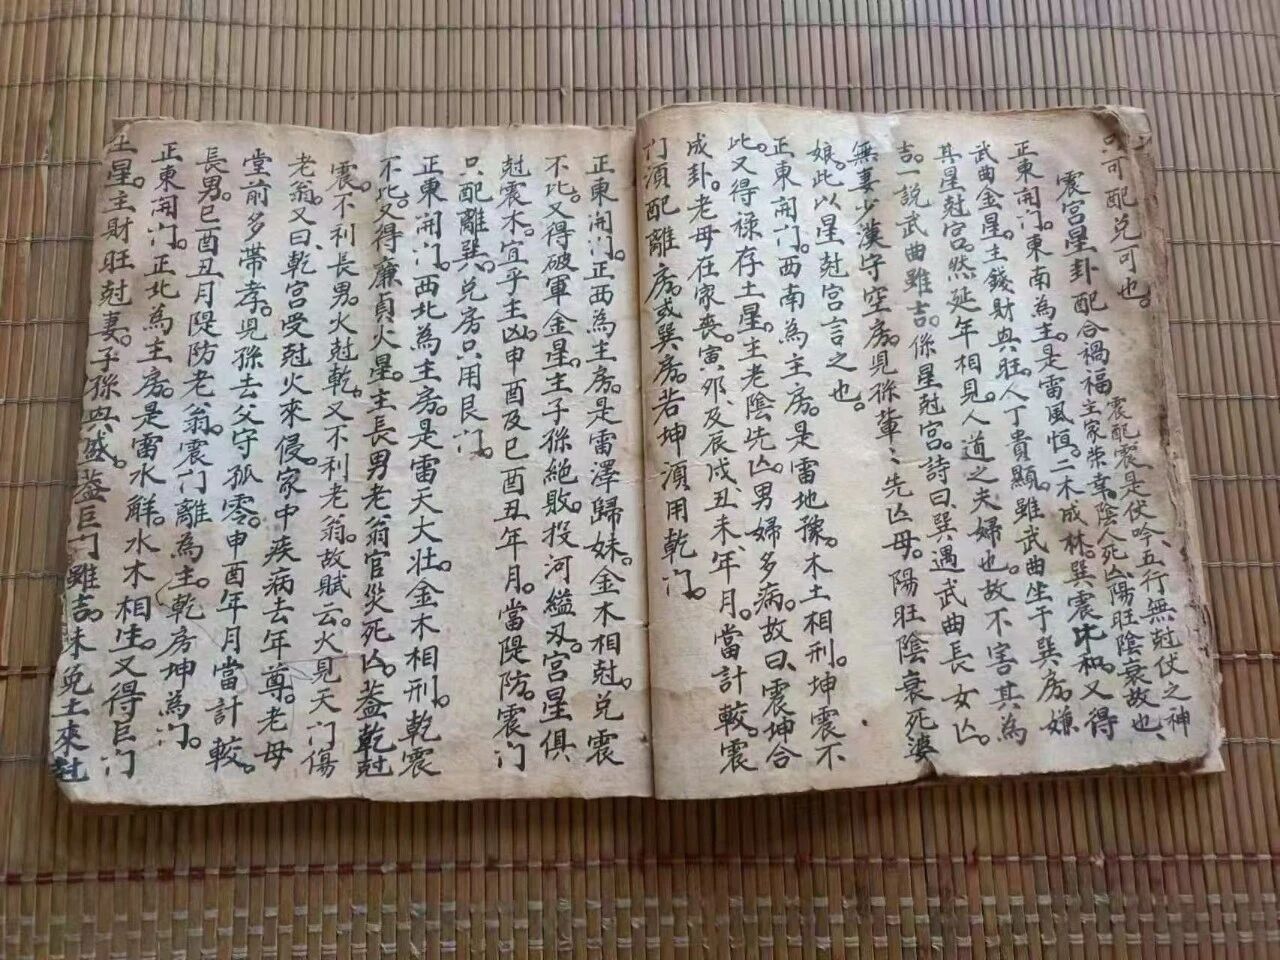 可配兌可也。
震配震是伏吟、五行無尅伏之神
震宮星卦配合禍福主家荣幸。陰人死凶陽旺陰衰故也、
正東開门。東南為主。是雷風恒。二木成林。巽震比和。又得
武曲金星。主錢財興旺。人丁貴顯。雖武曲坐于巽房。嫌
其星尅宮。然延年相見。人道之夫婦也。故不害其為
吉。一說武曲雖吉。係星尅宮。詩曰、巽遇武曲長女凶。
無妻少漢守空房。見孫輩〻先亾母。陽旺陰衰死婆
娘。此以星尅宮言之也。
正東開门。西南為主房。是雷地豫。木土相刑。坤震不
比。又得禄存土星。主老陰先凶。男婦多病。故曰、震坤合
成卦。老母在家丧。寅夘、及辰戌丑未、年月。當計較。震
门湏配離房。或巽房。若坤湏用乾门。
正東開门。正西為主房。是雷澤歸妹。金木相尅。兌震
不比。又得破軍金星。主子孫絕敗。投河縊刄。宮星俱
尅震木。宜乎主凶。申酉及巳酉丑年月。當隄防。震门
只配離巽。兌房只用艮门。
正東開门。西北為主房。是雷天大壮。金木相刑。乾震
不比。又得廉貞火星。主長男老翁官災死凶。葢乾尅
震。不利長男。火尅乾。又不利老翁。故賦云。火見天门傷
老翁。又曰、乾宮受尅火來侵。家中疾病去年尊。老母
堂前多带孝。見孫去父守孤零。申酉年月當計較。
長男。巳酉丑月隄防老翁。震门離為主。乾房坤為门。
正東開门。正北為主房。是雷水解。水木相生。又得巨门
土星。主財旺尅妻。子孫興盛。葢巨门雖吉。未免土來尅